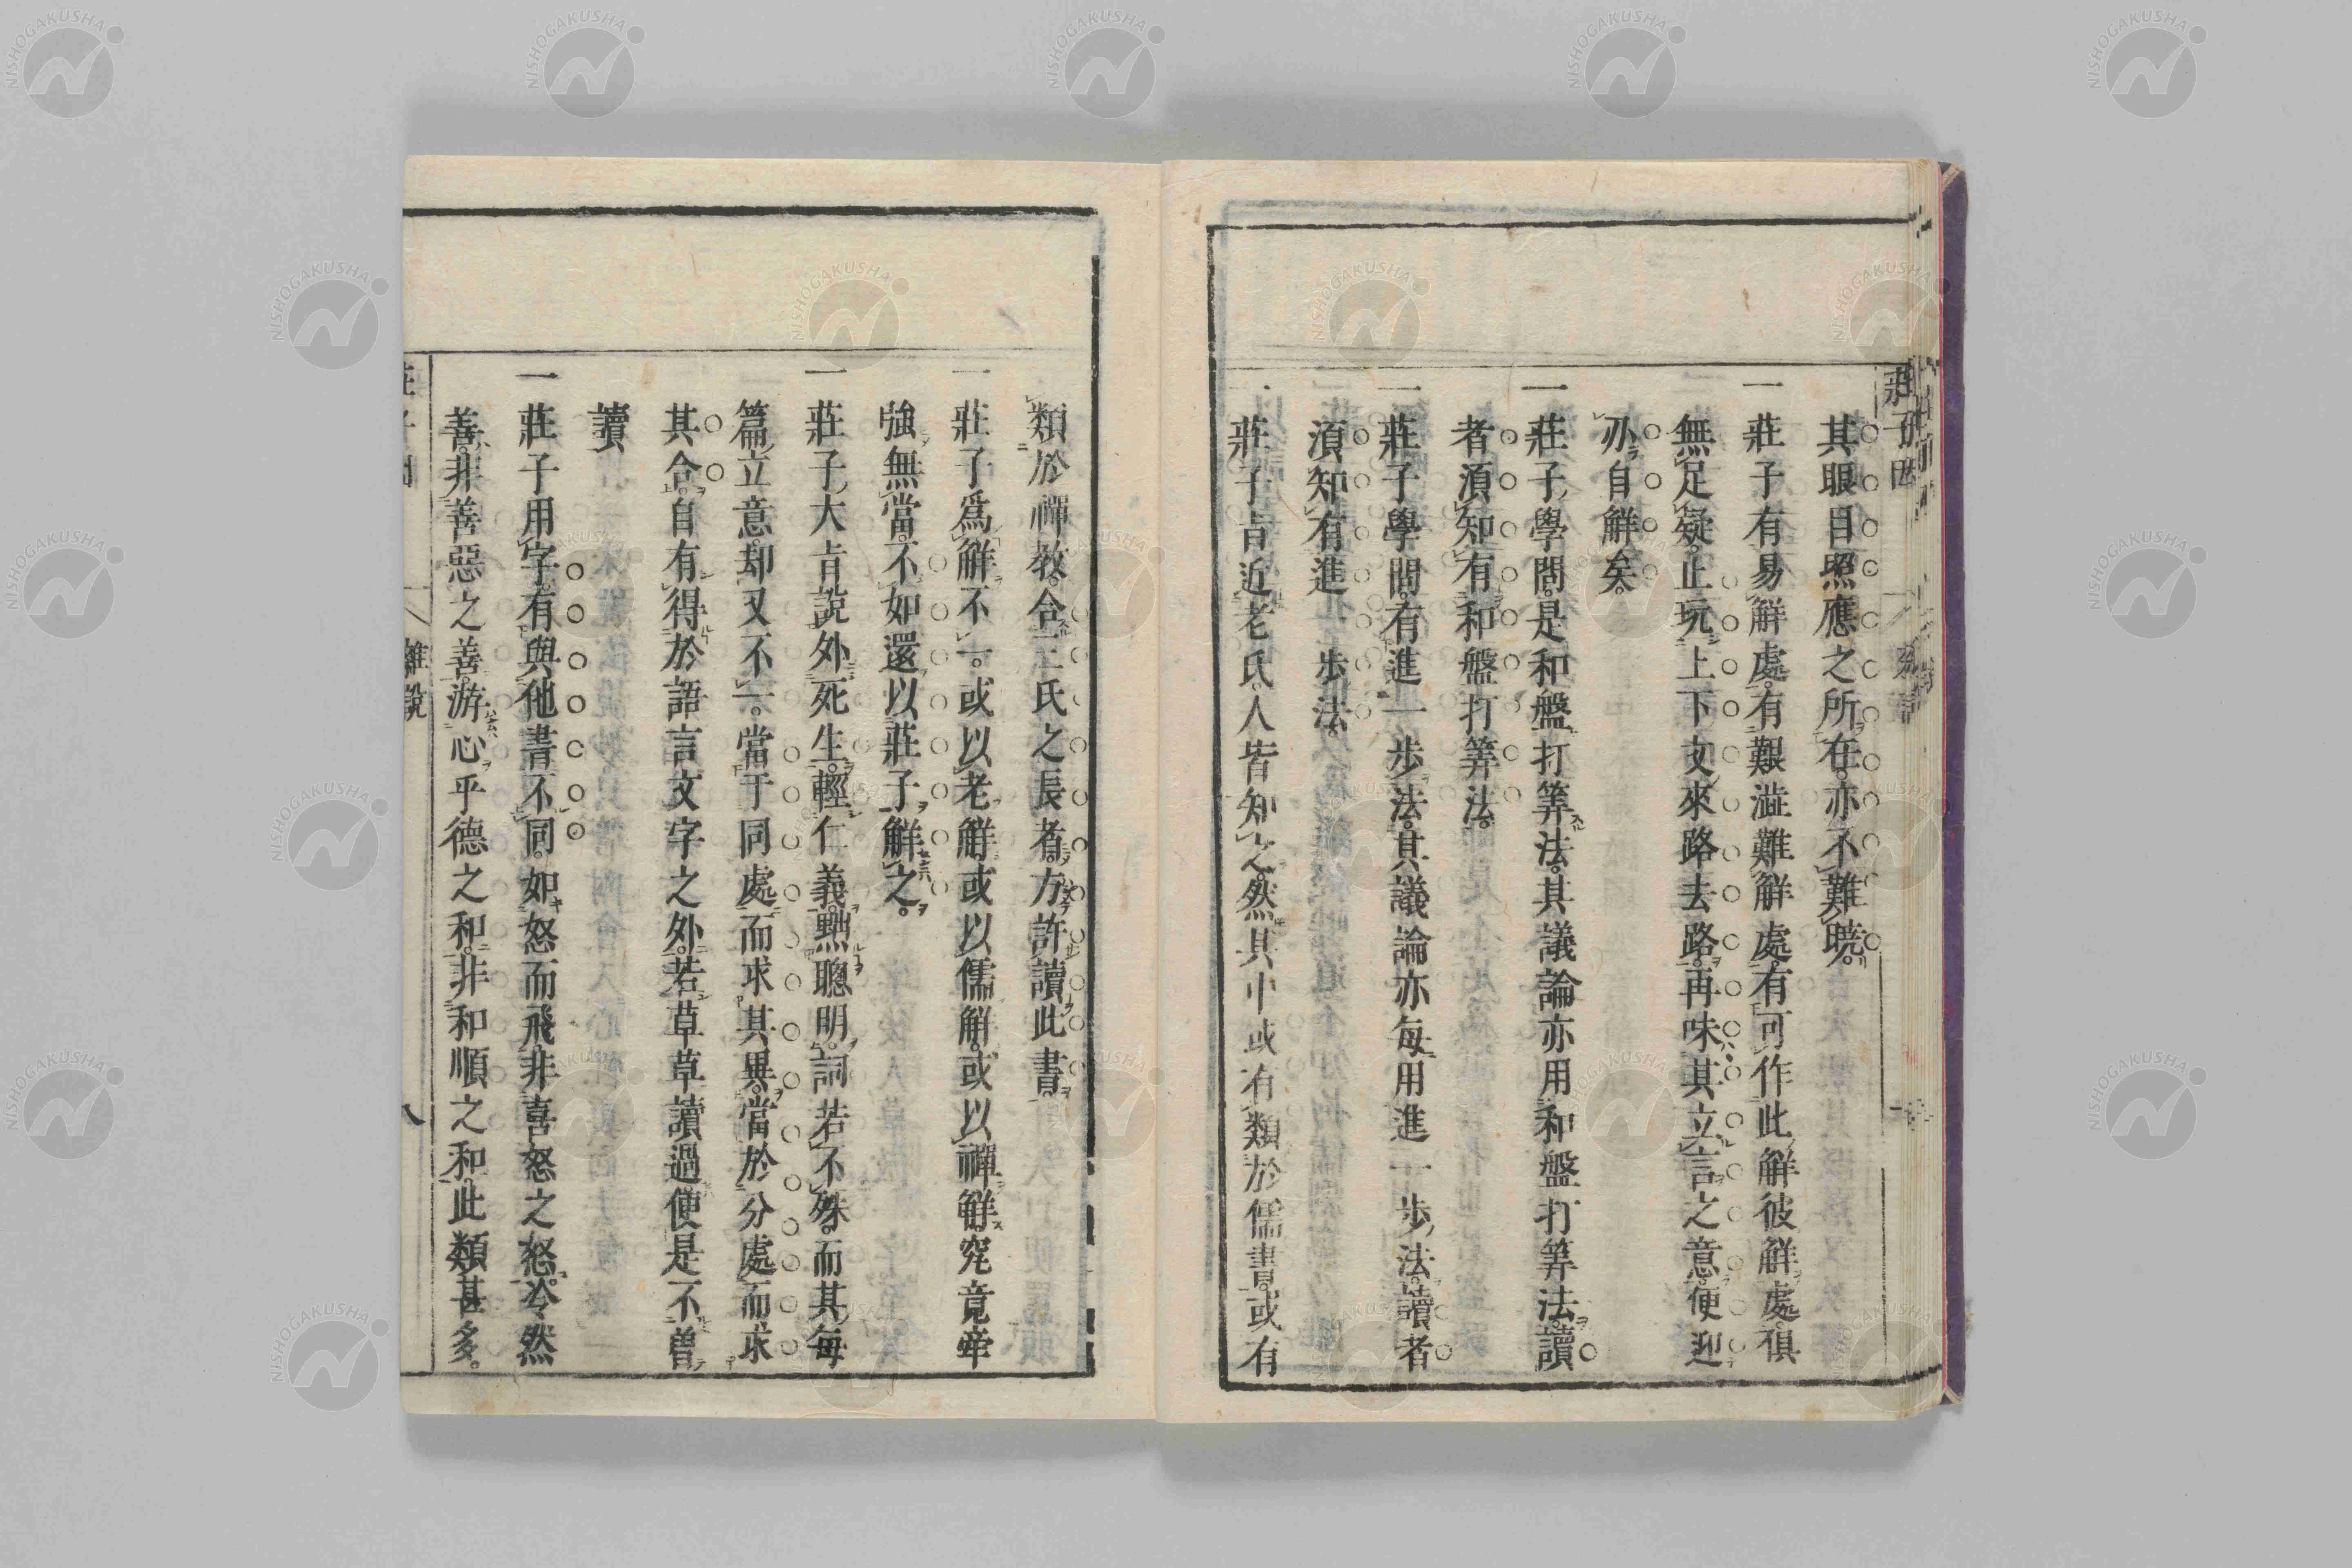 其眼目照應之所在。亦不難曉。
一莊子有易解處。有艱澁難解處。有可作此解彼解處。俱
無足疑。止玩上下文來路去路。再味其立言之意。便迎
刃自解矣。
一莊子學問。是和盤打筭法。其議論亦用和盤打筭法。讀
者湏知有和盤打筭法。
一莊子學問。有進一步法。其議論亦每用進一步法。讀者
湏知有進一步法。
一莊子㫖近老氏。人皆知之。然其中或有類於儒書。或有
類於禪教。合三氏之長者。方許讀此書。
一莊子爲解不一。或以老解。或以儒解。或以禪解。究竟牽
強無當。不如還以莊子解之。
一莊子大㫖說外死生。輕仁義。黜聰明。詞若不殊。而其每
篇立意。却又不一。當于同處而求其異。當於分處而求
其合。自有得於語言文字之外。若草草讀過。便是不曾
讀
一莊子用字。有與他書不同。如怒而飛。非喜怒之怒。冷然
善。非善惡之善。游心乎德之和。非和順之和。此類甚多。
雜說
八
NISHOGAKUSHA